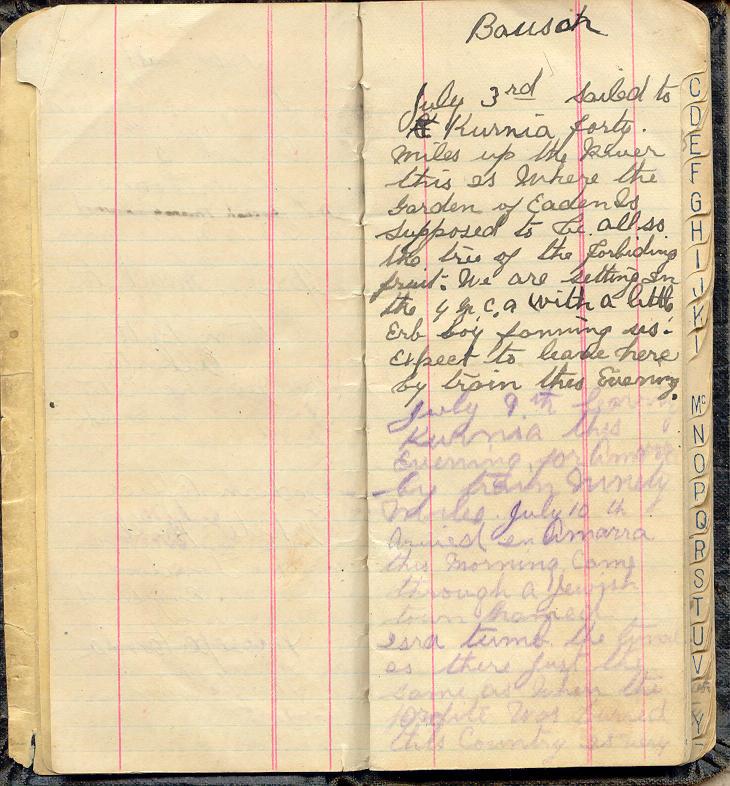 Bausch
July 3rd sailed to
Kurnia forty.
Miles up the River
this is Where the
Garden of Eaden Is
supposed to be. allso.
the tree of the forbiding
fruit. We are setting In
the y m c. a with a little
Erb boy fanning us.
Expect to leave here
by train this Evening.
July 9th
Kurnia this
Evening, for Amara
by train Ninety
Miles. July 10 th
Arived en Amarra
this Morning. Came
through a Jewish
town
Esra tumb. the
as there just the
same as When the
Was Buried
this Country is very
C
D
E
F
G
H
I
J
K
L
Mc
N
O
P
Q
R
S
T
U
V
Y